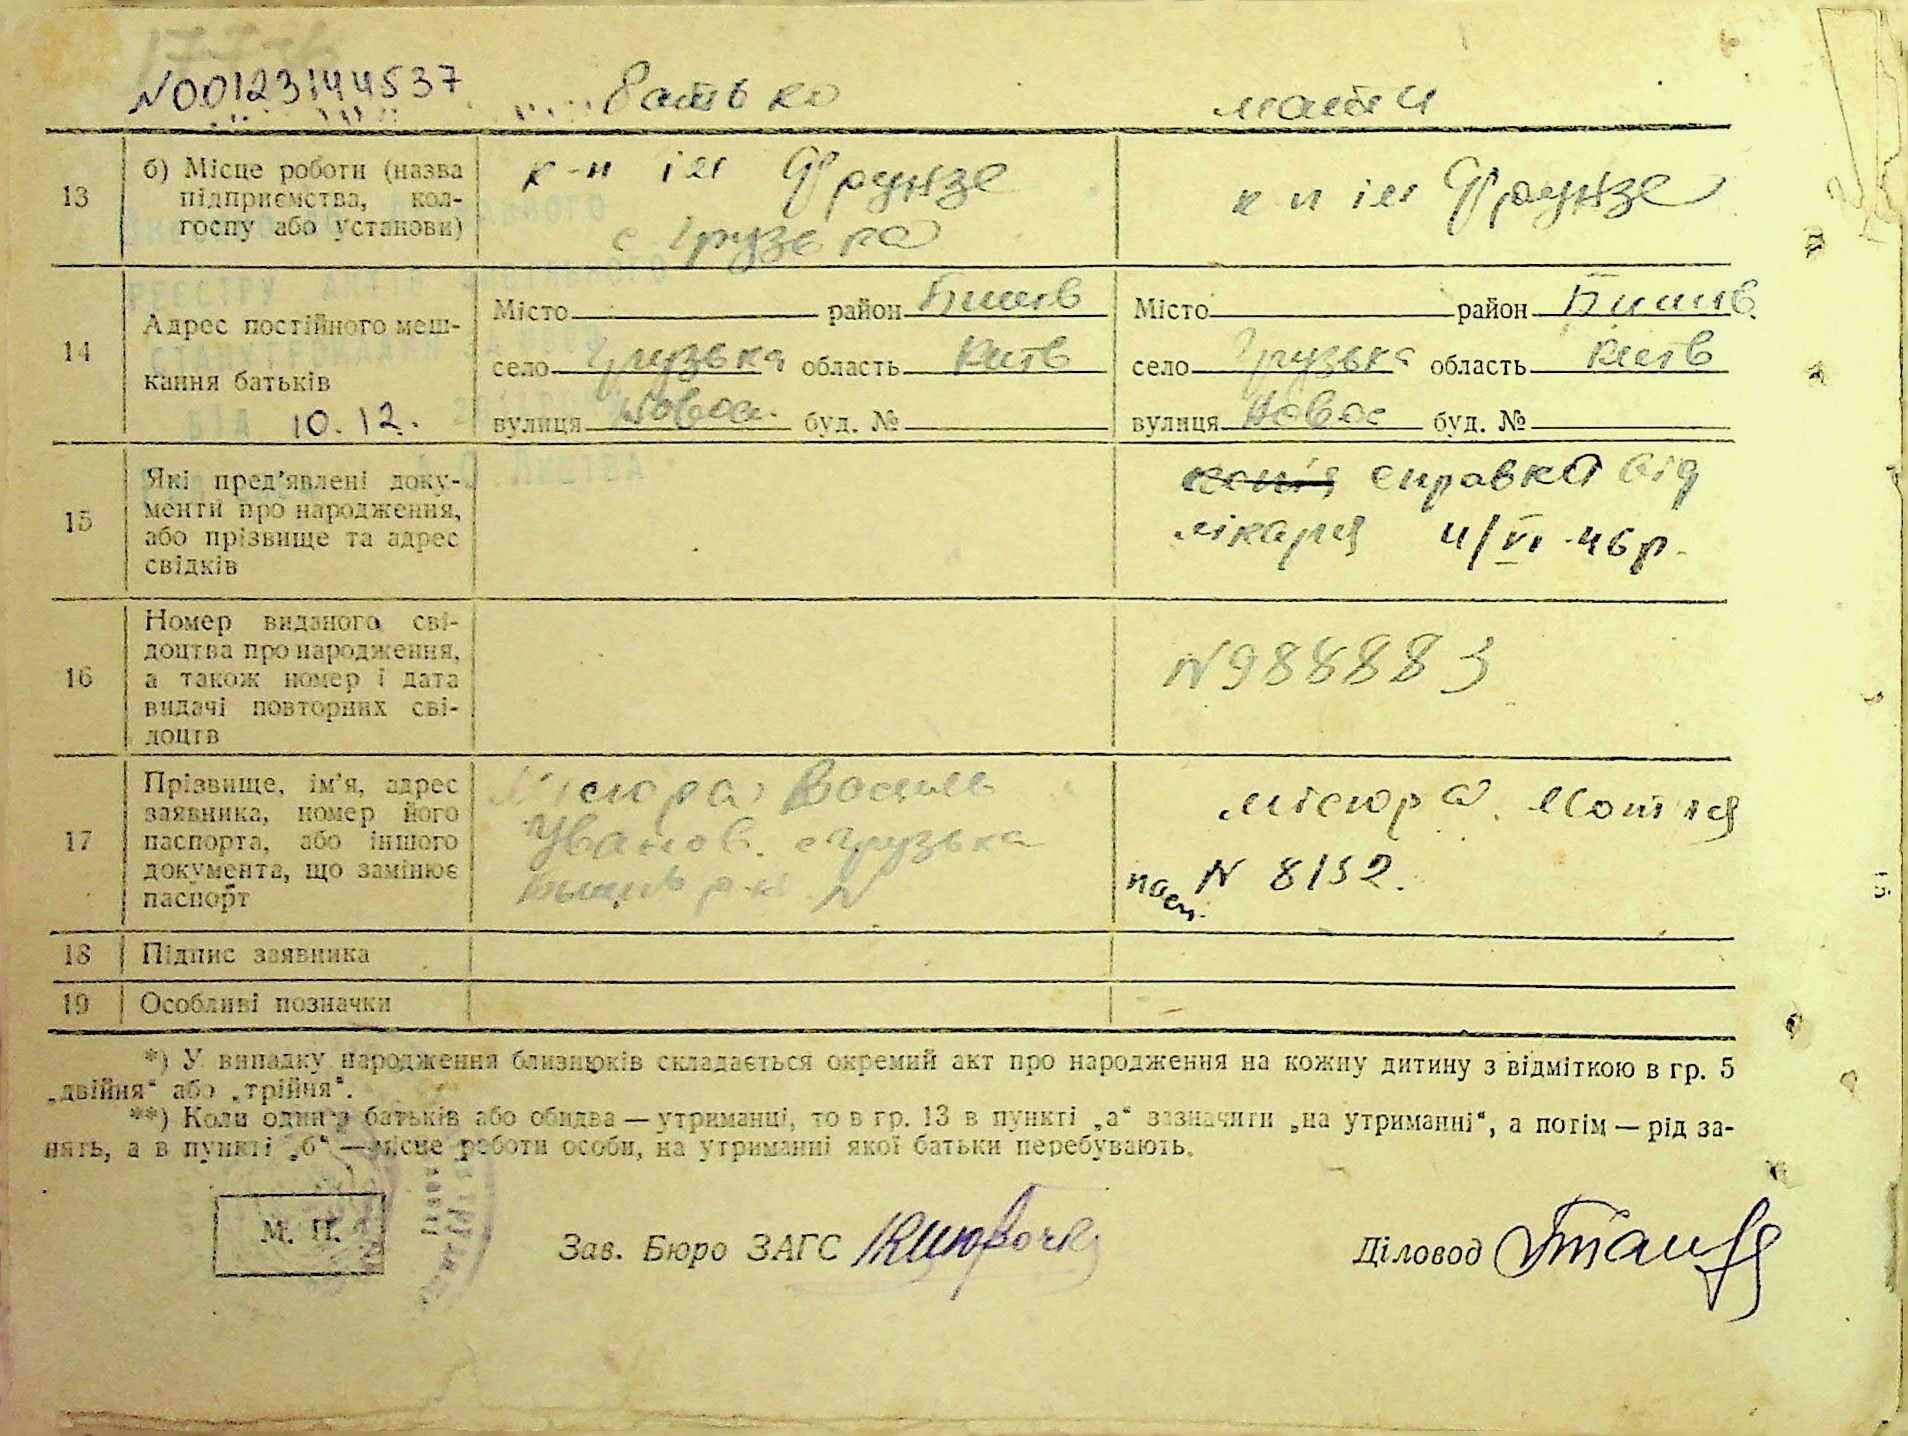 N00123144537
батько мати
13 б) Місце роботи (назва підприємства, колгоспу або установи)
к-п ім Фрунзе
с Грузька
к п ім Фрунзе
14 Адрес постійного меш-
кання батьків
10.12.
Місто район Бишів
село Грузька область Київ
вулиця буд. №
Місто район Бишів
село Грузька область Київ
вулиця буд. №
15 Які пред'явлені доку-
менти про народження,
або прізвище та адрес
свідків
копія справка від
лікаря 4/VI-46р.
16 Номер виданого сві-
доцтва про народження,
а також номер і дата
видачі повторних сві-
доцтв
N988883
17 Прізвище, ім'я, адрес
заявника, номер його
паспорта, або іншого
документа, що замінює
паспорт
Місюра Василь
Іванов. с Грузька
р-н N
Місюра Мотря
пасп. N 8132.
18 Підпис заявника
19 Особливі позначки
*) У випадку народження близнюків складається окремий акт про народження на кожну дитину з відміткою в гр. 5
„двійня“ або „трійня“.
**) Коли один з батьків або обидва — утриманці, то в гр. 13 в пункті „а“ зазначити „на утриманні“, а потім — рід за-
нять, а в пункті „б“ — місце роботи особи, на утриманні якої батьки перебувають.
М. П.
Зав. Бюро ЗАГС
Діловод